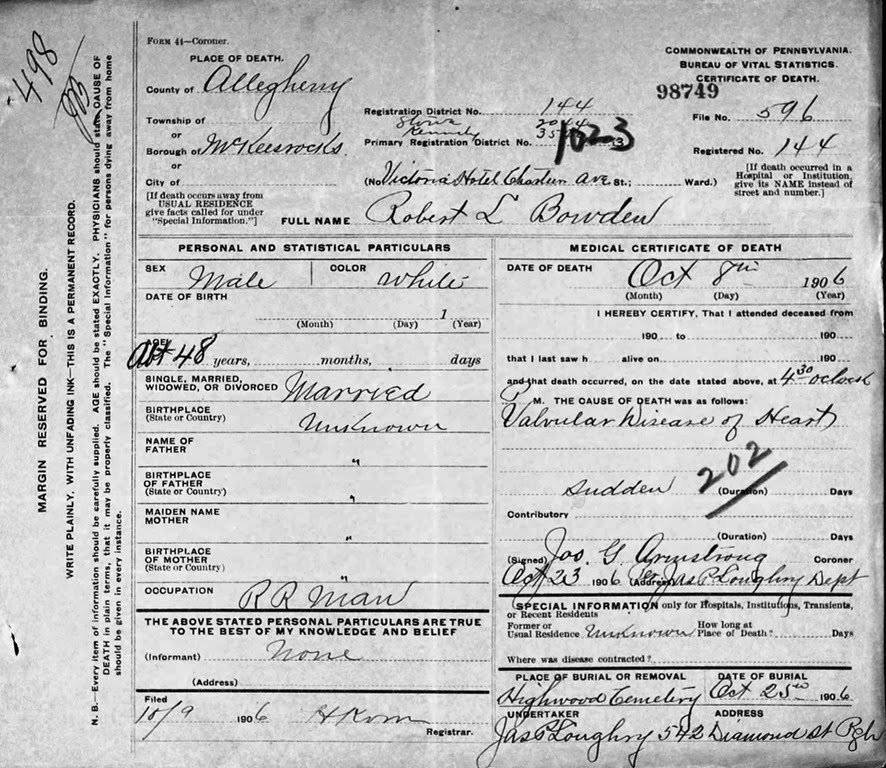 498
MARGIN RESERVED FOR BINDING.
WRITE PLAINLY, WITH UNFADING INK—THIS IS A PERMANENT RECORD.
N. B.—Every item of information should be carefully supplied. AGE should be stated EXACTLY. PHYSICIANS should state CAUSE OF
DEATH in plain terms, that it may be properly classified. The "Special Information" for persons dying away from home
should be given in every instance.
FORM 44—Coroner.
PLACE OF DEATH.
County of Allegheny
Township of
or
Borough of McKeesrocks
or
City of
[If death occurs away from
USUAL RESIDENCE
give facts called for under
"Special Information."]
COMMONWEALTH OF PENNSYLVANIA.
BUREAU OF VITAL STATISTICS.
CERTIFICATE OF DEATH.
98749
Registration District No. 144
Stowe
Kennedy
Primary Registration District No. 1023
File No. 596
Registered No. 144
(No. Victoria Hotel Chartiers Ave St.; Ward.)
[If death occurred in a
Hospital or Institution,
give its NAME instead of
street and number.]
FULL NAME Robert L Bowden
PERSONAL AND STATISTICAL PARTICULARS
SEX Male
COLOR White
DATE OF BIRTH
1
(Month) (Day) (Year)
AGE
Abt 48 years, months, days
SINGLE, MARRIED,
WIDOWED, OR DIVORCED Married
BIRTHPLACE
(State or Country) Unknown
NAME OF
FATHER "
BIRTHPLACE
OF FATHER
(State or Country) "
MAIDEN NAME
MOTHER "
BIRTHPLACE
OF MOTHER
(State or Country) "
OCCUPATION R R Man
THE ABOVE STATED PERSONAL PARTICULARS ARE TRUE
TO THE BEST OF MY KNOWLEDGE AND BELIEF
(Informant) None
(Address)
Filed
10/9 1906 H Korn
Registrar.
MEDICAL CERTIFICATE OF DEATH
DATE OF DEATH Oct 8th 1906
(Month) (Day) (Year)
I HEREBY CERTIFY, That I attended deceased from
190 to 190
that I last saw h alive on 190
and that death occurred, on the date stated above, at 4 30 oclock
P M. THE CAUSE OF DEATH was as follows:
Valvular Disease of Heart
202
sudden (Duration) Days
Contributory
(Duration) Days
(Signed) Jos. G. Armstrong Coroner
Oct 23 1906 (Address) Jas P Loughry Dept
SPECIAL INFORMATION only for Hospitals, Institutions, Transients,
or Recent Residents
Former or
Usual Residence Unknown
How long at
Place of Death? Days
Where was disease contracted?
PLACE OF BURIAL OR REMOVAL
Highwood Cemetery
DATE OF BURIAL
Oct 25th 1906
UNDERTAKER
Jas P Loughry
ADDRESS
542 Diamond St Pgh